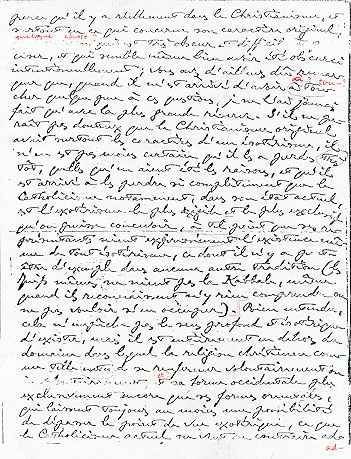 parce qu'il y a réellement dans le Christianisme, et
surtout en ce qui concerne son caractère original,
quelque chose qui est très obscur et difficile à
ciser, et qui semble même bien avoir été obscurci
intentionnellement; vous avez d'ailleurs dû remar-
quer que, quand il m'est arrivé d'avoir à tou-
cher quelque peu à ces questions, je ne l'ai jamais
fait qu'avec la plus grande réserve. S'il ne pa-
raît pas douteux que le Christianisme originel
avait surtout les caractères d'un ésotérisme, il
n'en est pas moins certain qu'il les a perdus très
tôt, quelles qu'en aient été les raisons, et qu'il
est arrivé à les perdre si complètement que le
Catholicisme notamment, dans son état actuel,
est l'exotérisme le plus et le plus exclusif
qu'on puisse concevoir, à tel point que ses re-
présentants nient expressément l'existence mê-
me de tout ésotérisme, ce dont il n'y a pas
d'exemple dans aucune autre tradition (les
Juifs mêmes ne nient pas la Kabbale, même
quand ils reconnaissent n'y rien comprendre ou
ne pas vouloir s'en occuper). Bien entendu,
cela n'empêche pas le sens profond et ésotérique
d'exister, mais il est entièrement en dehors du
domaine dans lequel la religion chrétienne com-
me telle entend se renfermer volontairement
et sa forme occidentale plus
exclusivement encore que ses formes orientales,
qui laissent toujours au moins une possibilité
de dépasser le point de vue exotérique, ce que
le Catholicisme actuel au contraire
ad-